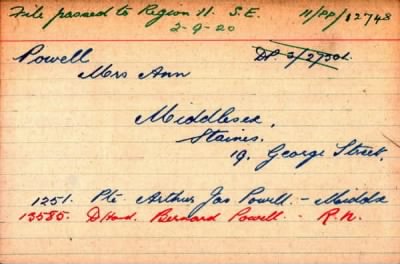 File passed to Region 11. S.E. 11/PP/12748
2-9-20
Powell
Mrs Ann
Middlesex,
Staines.
19. George Street.
1251. Pte Arthur Jas Powell. - Middx
13585. D/Hand. Bernard Powell - R.N.